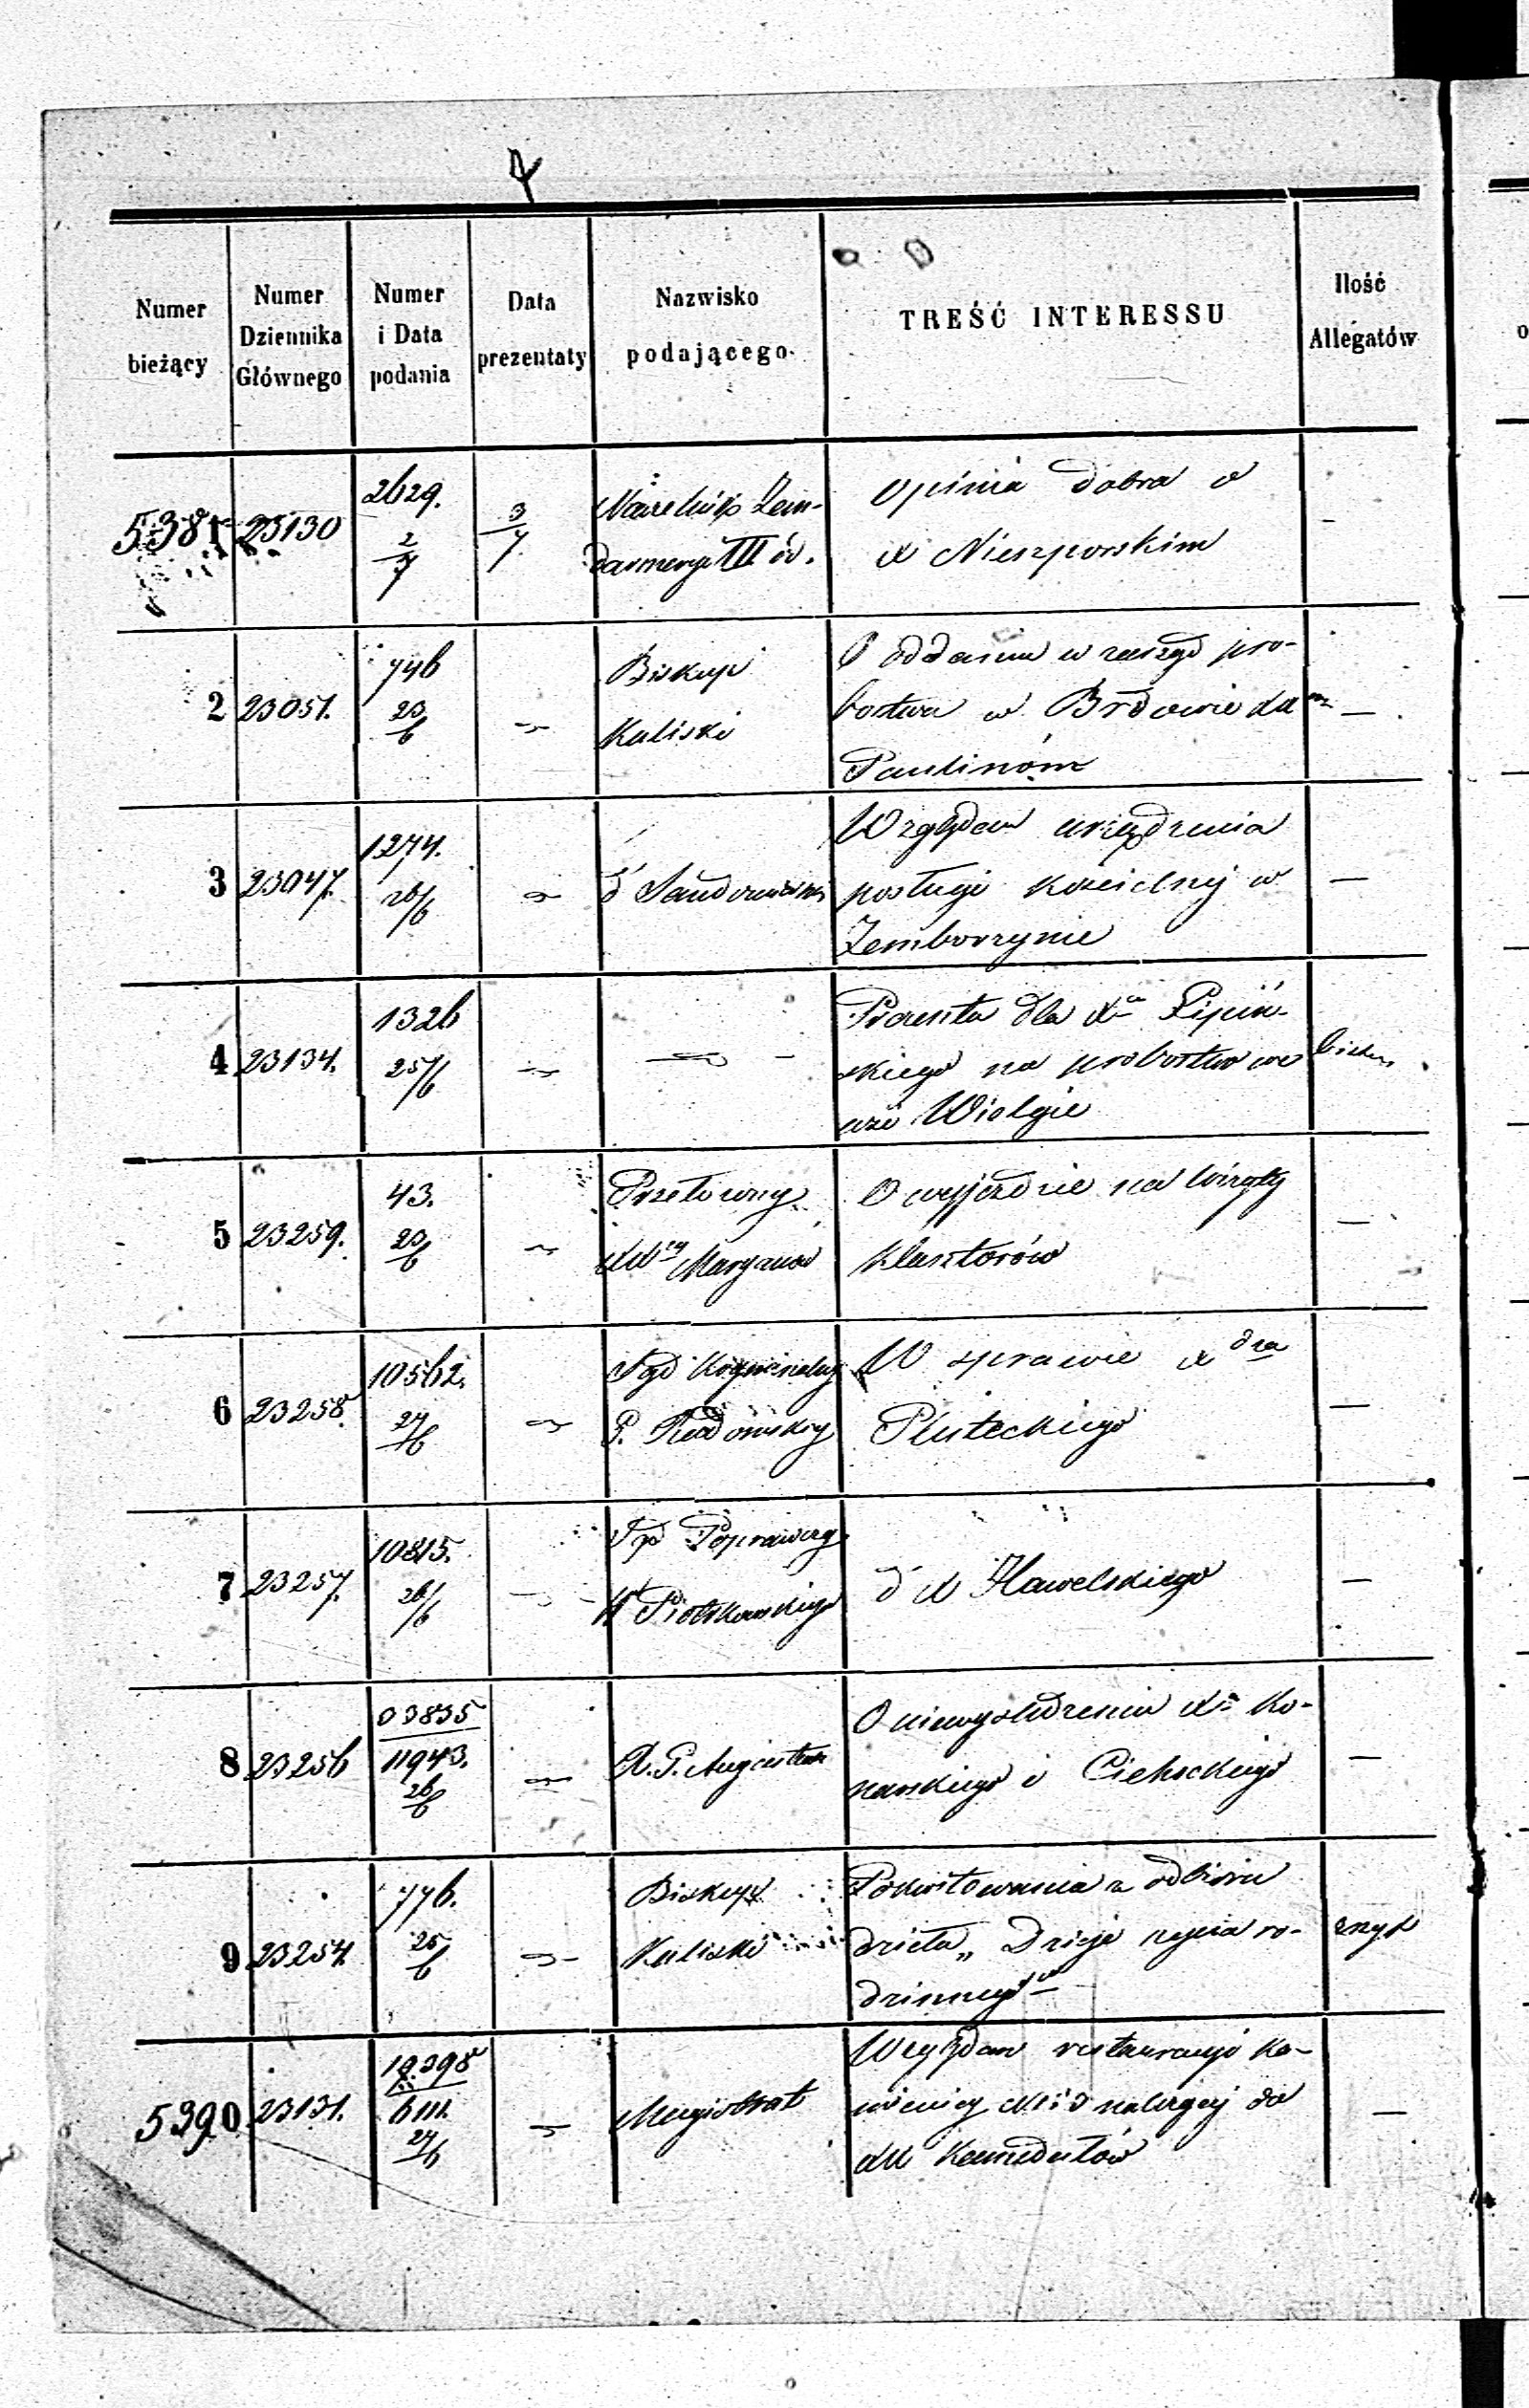 Numer bieżący
Numer Dziennika Głównego
Numer i Data podania
Data prezentaty
Nazwisko podającego.
TREŚĆ INTERESSU
Ilość Allegatów
5381 23130 2629. 2/7 3/7
Naczelnik Żan-
darmeryi III od.
Opinia dobra o
X Nieszporskim
—
2 23051. 746 23/6 "
Biskup
Kaliski
O oddaniu w zarząd pro-
bostwa w Brdowie XX
Paulinóm
—
3 23047. 1274. 26/6 "
d° Sandomierski
Względem urządzenia
posługi kościelnej w
Zemborzynie
—
4 23134. 1326 25/6 "
"
Prezenta dla Xa Lipiń-
skiego na probostwo we
wsi Wielgie
5 23259. 43. 23/6 "
Przełożony
XXży Maryanów
O wyjeździe na wizytę
klasztorów
—
6 23258. 10562. 27/6 "
Sąd Kryminalny
G. Radomskiej
W sprawie X dza
Pluteckiego
—
7 23257. 10815. 26/6 "
Sąd Poprawczy
W Piotrkowskiego
d° X Hawelskiego
—
8 23256 33835
11943. 26/6 "
R. G. Augustow
O niewyśledzeniu Xa Ko-
narskiego i Cichockiego
—
9 23254 776. 25/6 "
Biskup
Kaliski
Pokwitowania z odbioru
dzieła „Dzieje życia ro-
dzinnego"
5390 23131. 19398
6111. 27/6 "
Magistrat
Względem restauracyi ka-
mienicy należącej do
XX Kamedułów
—